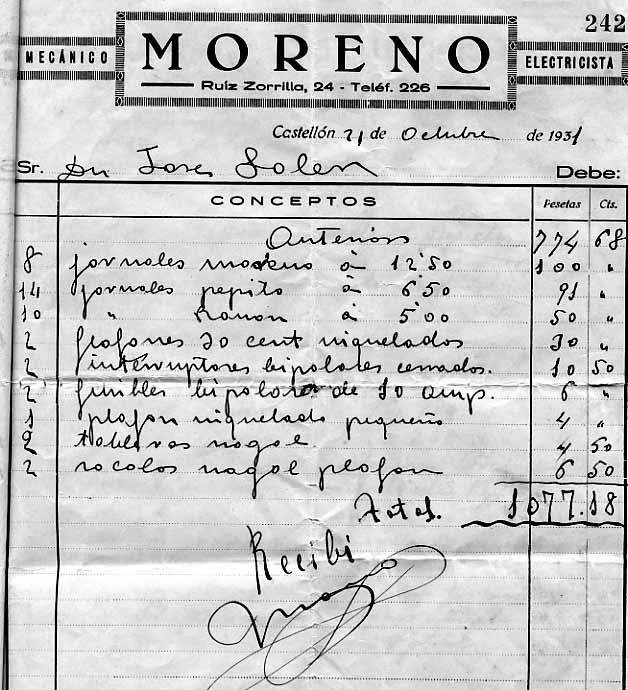 242
MECÁNICO MORENO ELECTRICISTA
Ruíz Zorrilla, 24 - Teléf. 226
Castellón 21 de Octubre de 1931
Sr. Dn Jose Soler Debe:
CONCEPTOS Pesetas Cts.
Anterior 774 68
8 jornales moreno à 12'50 100 "
14 jornales pepito à 6'50 91 "
10 " Ramon à 5'00 50 "
2 plafones 30 cent niquelados 30 "
2 interruptores bipolares cerrados. 10 50
2 fusibles bipolar de 10 amp. 6 "
1 plafon niquelado pequeño 4 "
2 tableros nogal. 4 50
2 socolos nogal plafon 6 50
Total. 1077.18
Recibi